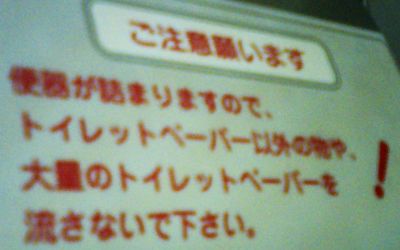 ご注意願います
便器が詰まりますので、
トイレットペーパー以外の物や、
大量のトイレットペーパーを
流さないで下さい。
!